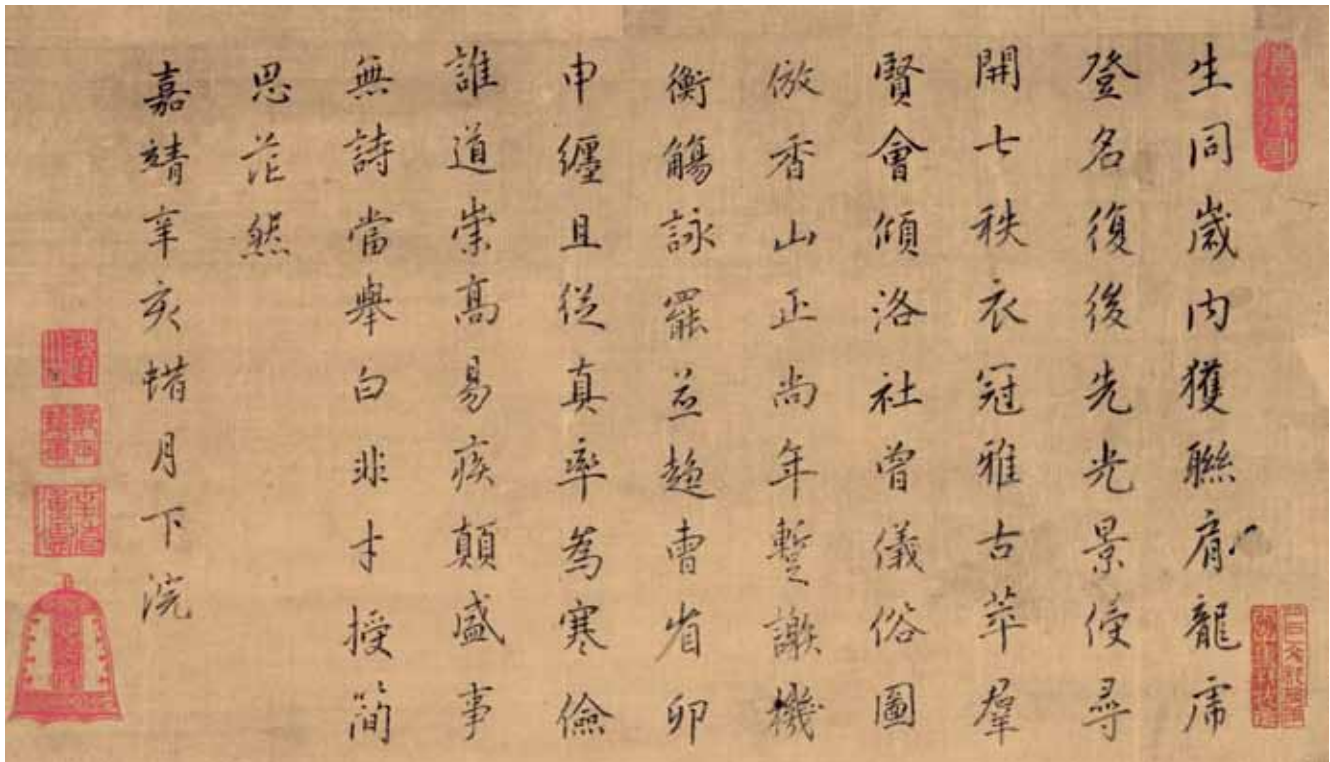 生同歲内獲聯肩龍席
登名復後先光景侵尋
開七秩衣冠雅古萃羣
賢會傾洛社曾儀俗圖
倣香山正尚年暫謝機
衡觴詠罷並趍曹省卯
申纏且從真率為寒儉
誰道崇高易疾顛盛事
無詩當舉白非才授簡
思茫然
嘉靖辛亥蜡月下浣